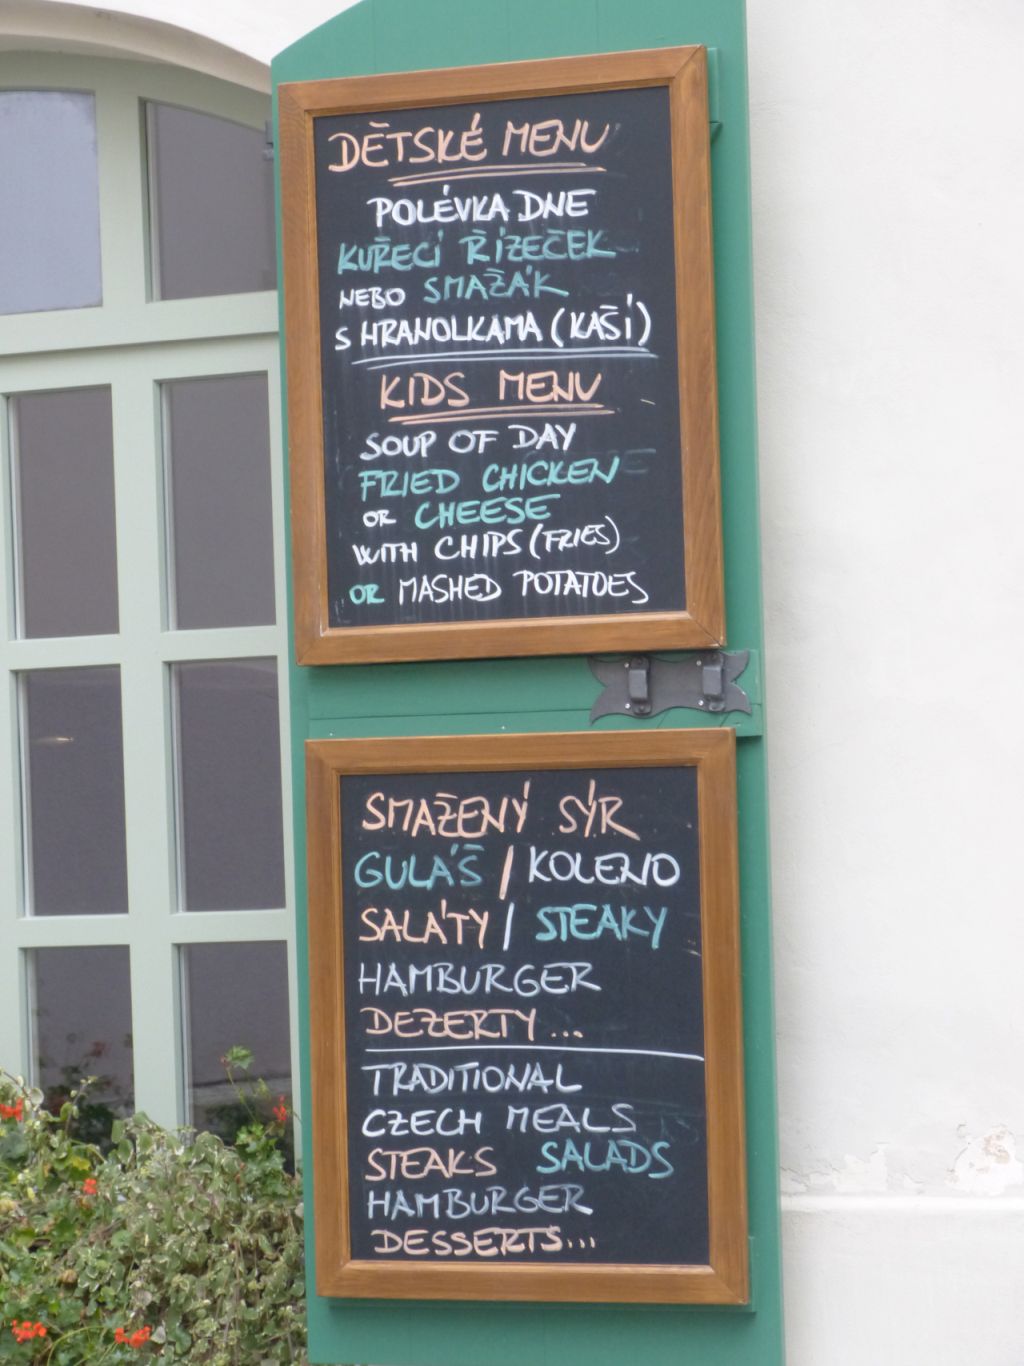 DĚTSKÉ MENU
POLÉVKA DNE
KUŘECÍ ŘÍZEČEK
NEBO SMAŽÁK
S HRANOLKAMA (KAŠÍ)
KIDS MENU
SOUP OF DAY
FRIED CHICKEN
OR CHEESE
WITH CHIPS (FRIES)
OR MASHED POTATOES
SMAŽENÝ SÝR
GULÁŠ / KOLENO
SALÁTY / STEAKY
HAMBURGER
DEZERTY ...
TRADITIONAL
CZECH MEALS
STEAKS SALADS
HAMBURGER
DESSERTS...